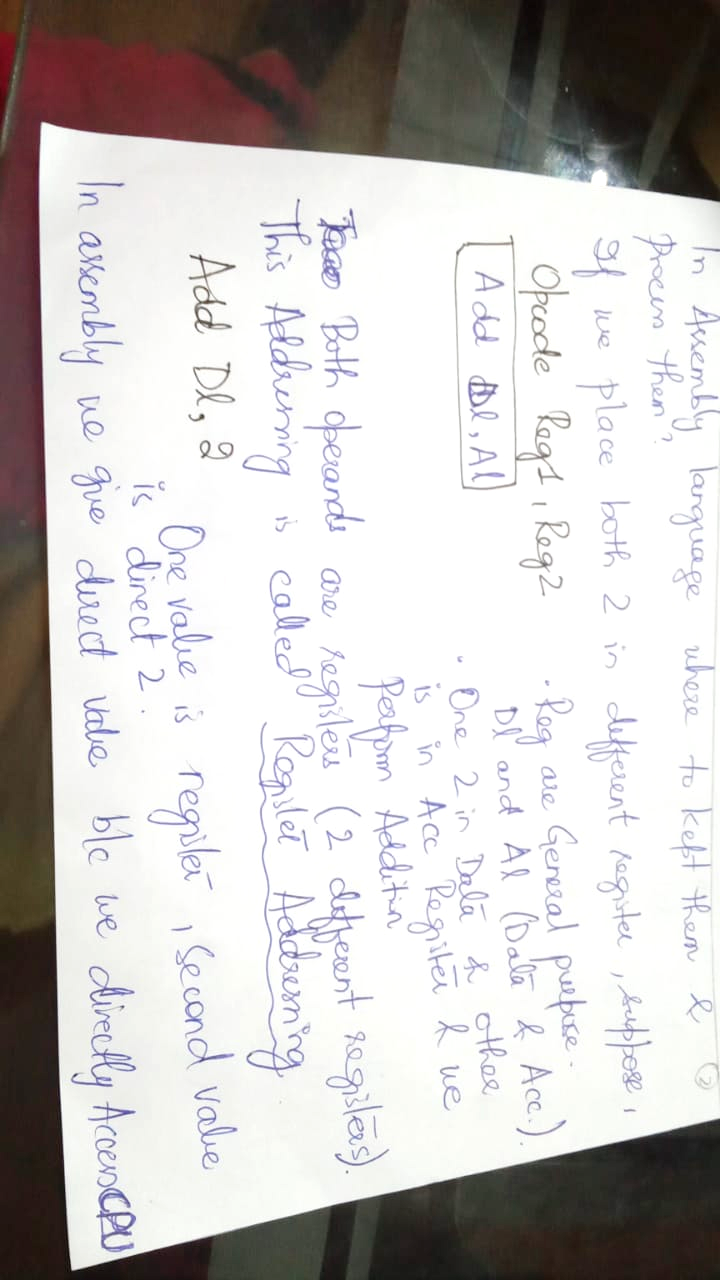 ②
In Assembly language where to kept them &
Process them?
If we place both 2 in different register, suppose,
Opcode Reg1, Reg2
Add Dl, Al
• Reg are General purpose.
Dl and Al (Data & Acc.).
• One 2 in Data & other
is in Acc Register & we
Perform Addition
Both operands are registers (2 different registers).
This Addressing is called Register Addressing.
Add Dl, 2
One value is register, second value
is direct 2.
In assembly we give direct value b/c we directly Access CPU